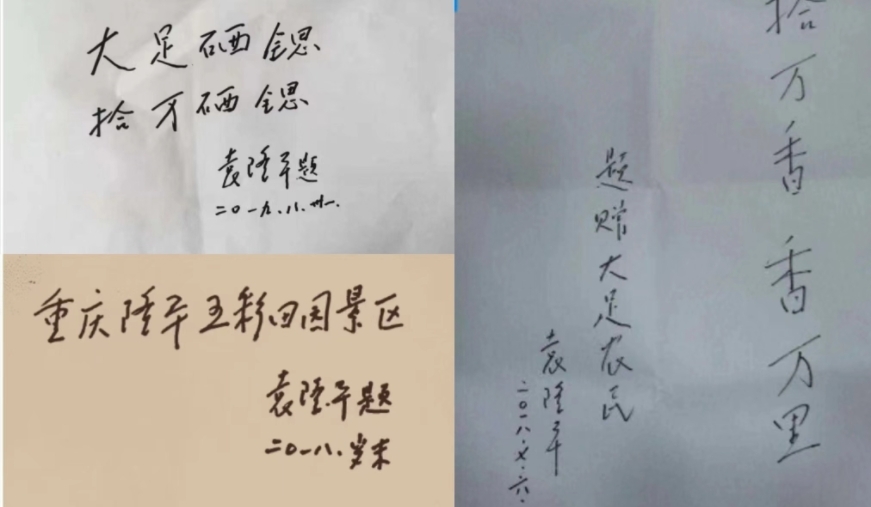 大足硒锶
拾万硒锶
袁隆平题
二〇一九.八.卅一.
重庆隆平五彩田园景区
袁隆平题
二〇一八.岁末
拾万香香万里
题赠大足农民
袁隆平
二〇一八.七.六.